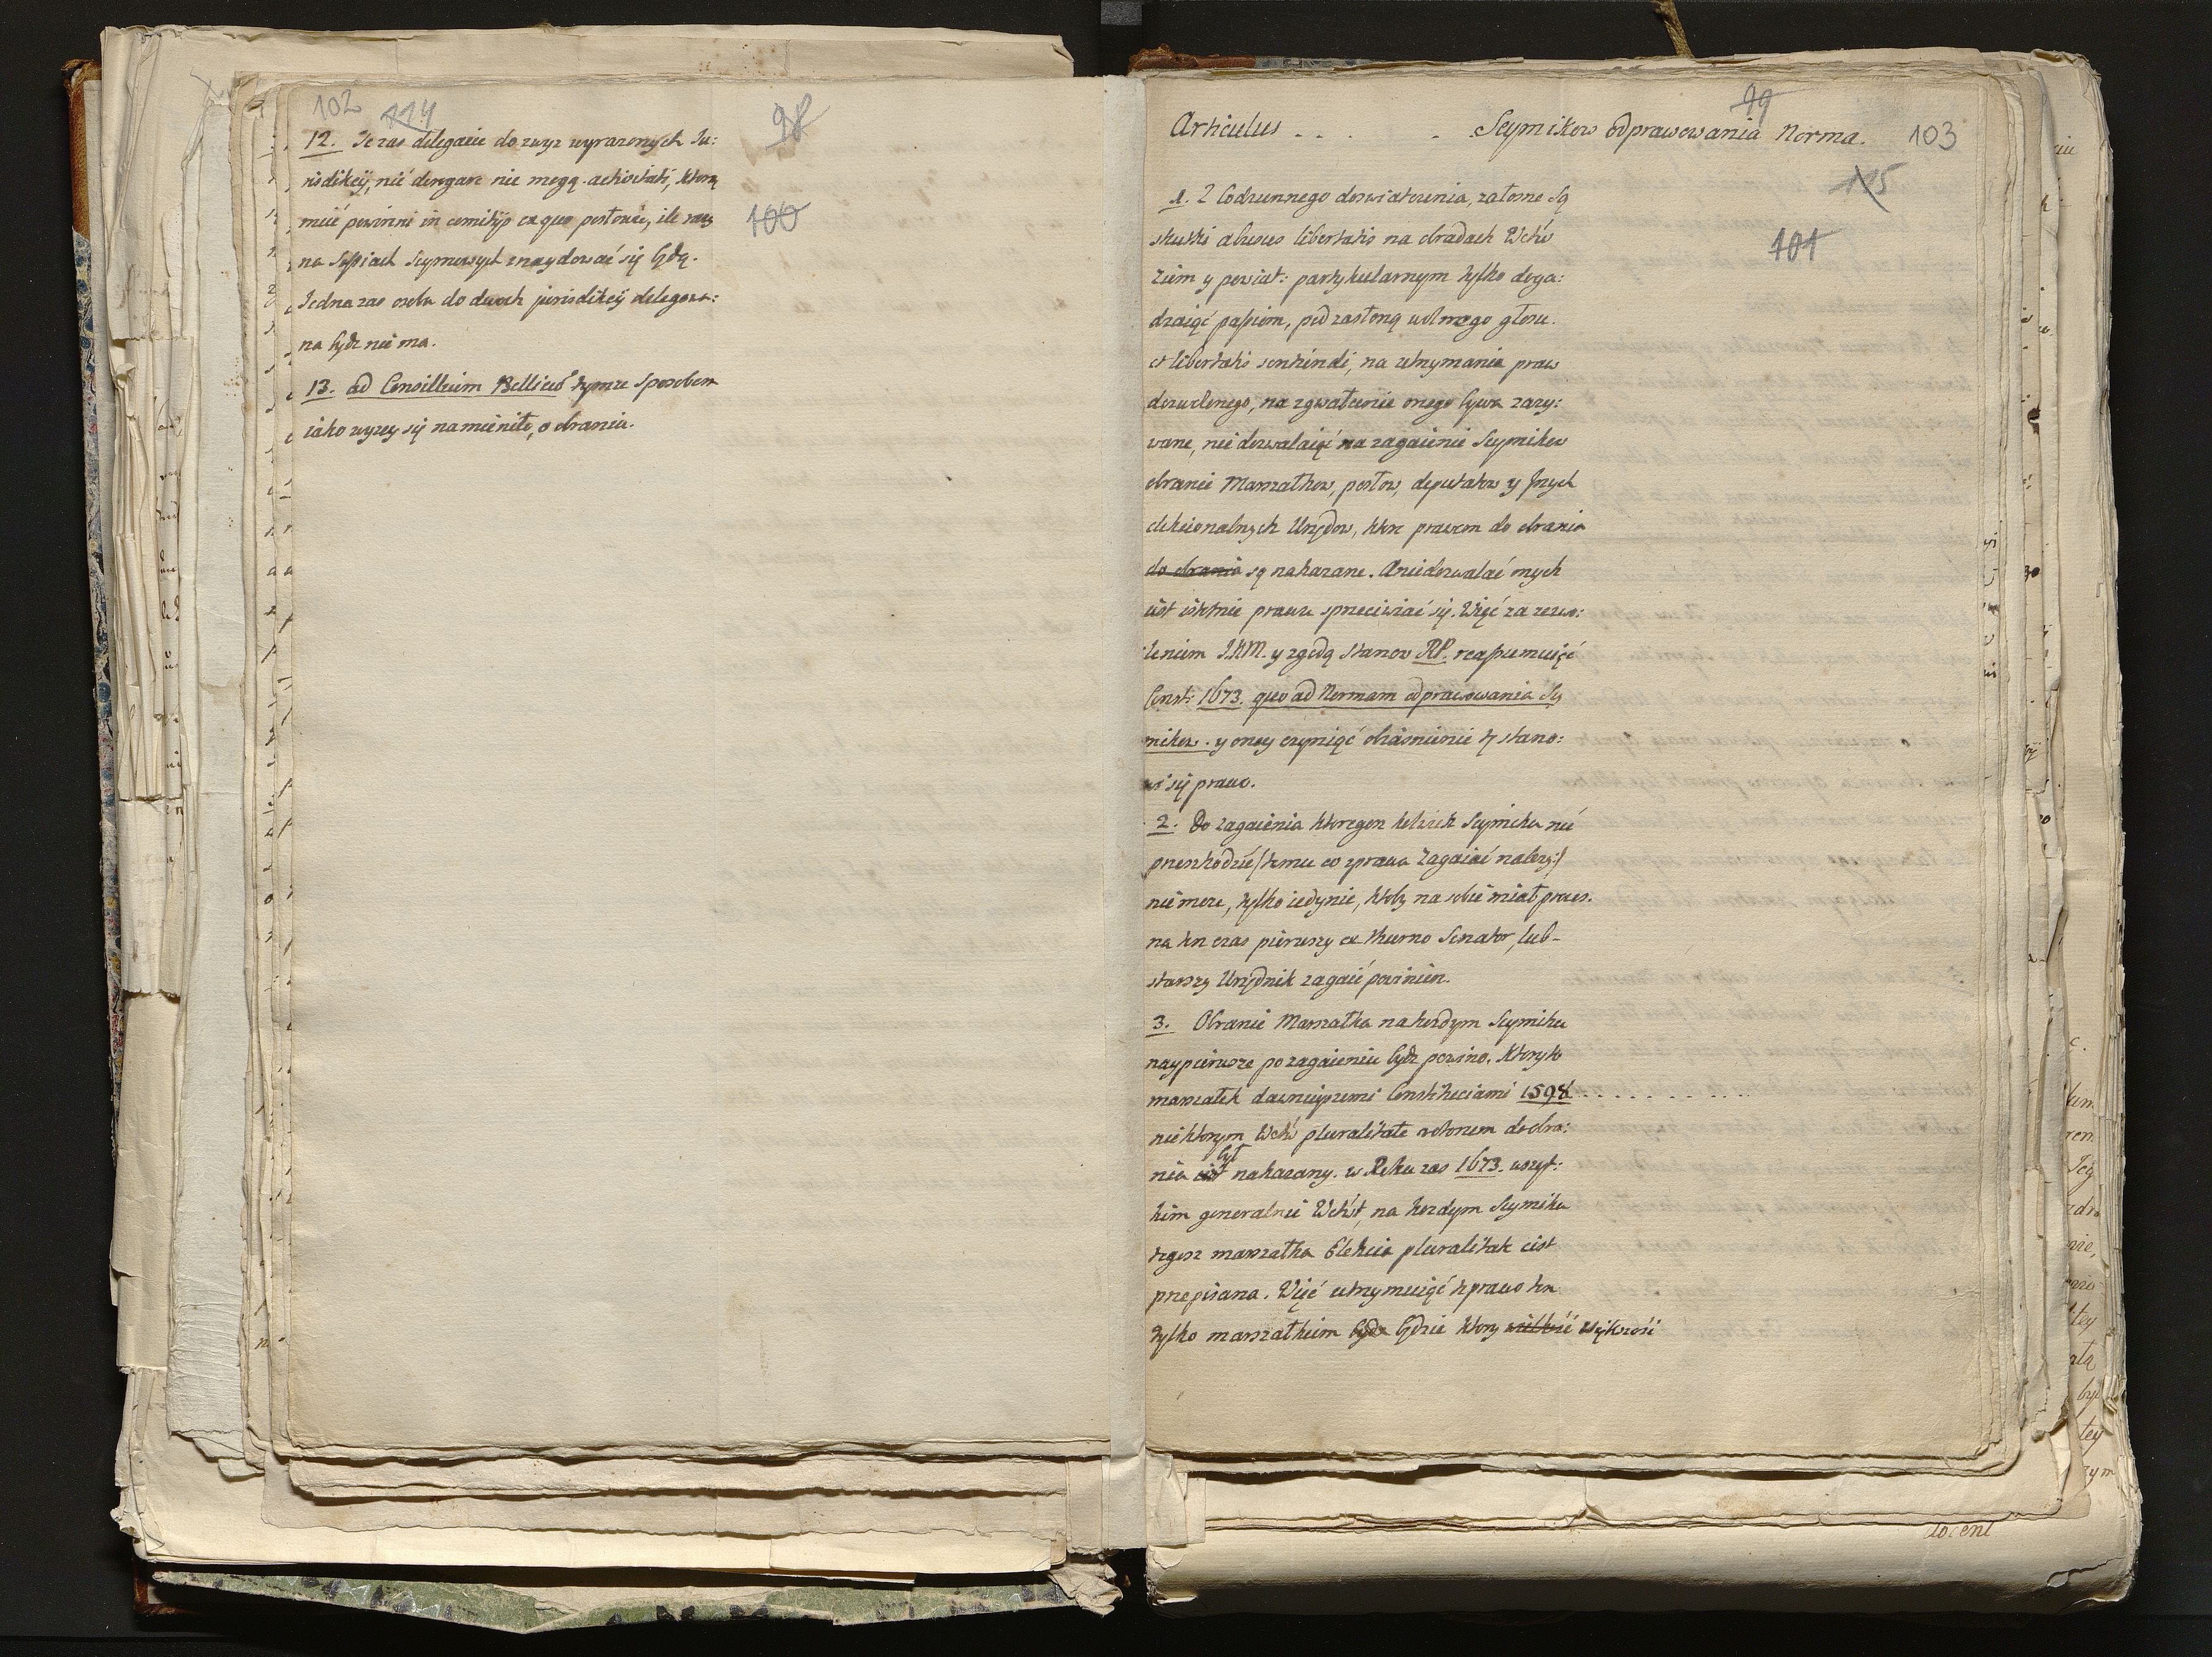 102 114 98
12. Te zas delegacie do zwyż wyrazonych Ju:
risdikcij, nic derogare nie mogą activitati, ktorą
mieć powinni in comitijs ex quo posłowie, ile razy
100
na Sessiach Seymowych znaydować się będą.
Jedna zas osoba do dwoch jurisdikcij delegowa:
na bydz nie ma.
13. ad Consillium Bellicũ tymze sposobem
iako wyzey się namieniło, o obraniu.
99
Articulus . . . . Seymikow odprawowania Norma. 103
115
1. Z Codziennego doswiadczenia, załosne Są
skutki abusus libertatis na obradach Wdztw
101
Ziem y powiat: partykularnym tylko doga:
dzaiąć passiom, pod zasłoną wolnego głosu.
et libertatis sentiendi, na utrzymania praw
dozwolonego, na zgwałcenie onego bywa zazy:
wane, nie dozwalaiąć na zagaienie Seymikow
obranie Marszałkow, posłow, deputatow y Jnych
elekcionalnych Urzędow, ktore prawem do obrania
do obrania są nakazane. A niedozwalać onych
iest istotnie prawu sprzeciwiać się. Więć za zezwo:
leniem J.K.M. y zgodą Stanow RP. reassumuiąć
Const: 1673. quo ad Normam odprawowania Sey
mikow. y oney czyniąć obiasnienie to stano:
wi się prawo.
2. Do zagaienia ktoregoz kolwiek Seymiku nie
przeszkodzić /: temu co z prawa zagaiać należy :/
nie moze, tylko iedynie, ktoby na sobie miał praes.
na ten czas pierwszy ex thurno Senator, lub -
starszy Urzędnik zagaić powinien.
3. Obranie Marszałka na kozdym Seymiku
naypierwsze po zagaieniu bydz powino. Ktoryto
marszałek dawnieyszemi Constituciami 1598 . . . . . . . . .
niektorym Wdztw pluralitate votorum do obra:
nia iest był nakazany. w Roku zas 1673. wszyt:
kim generalnie Wdztw, na kozdym Seymiku
tegosz marszałka Elekcia pluralitate iest
przepisana. Więć utrzymuiąć to prawo ten
tylko marszałkiem bydz będzie ktory wielkość większość